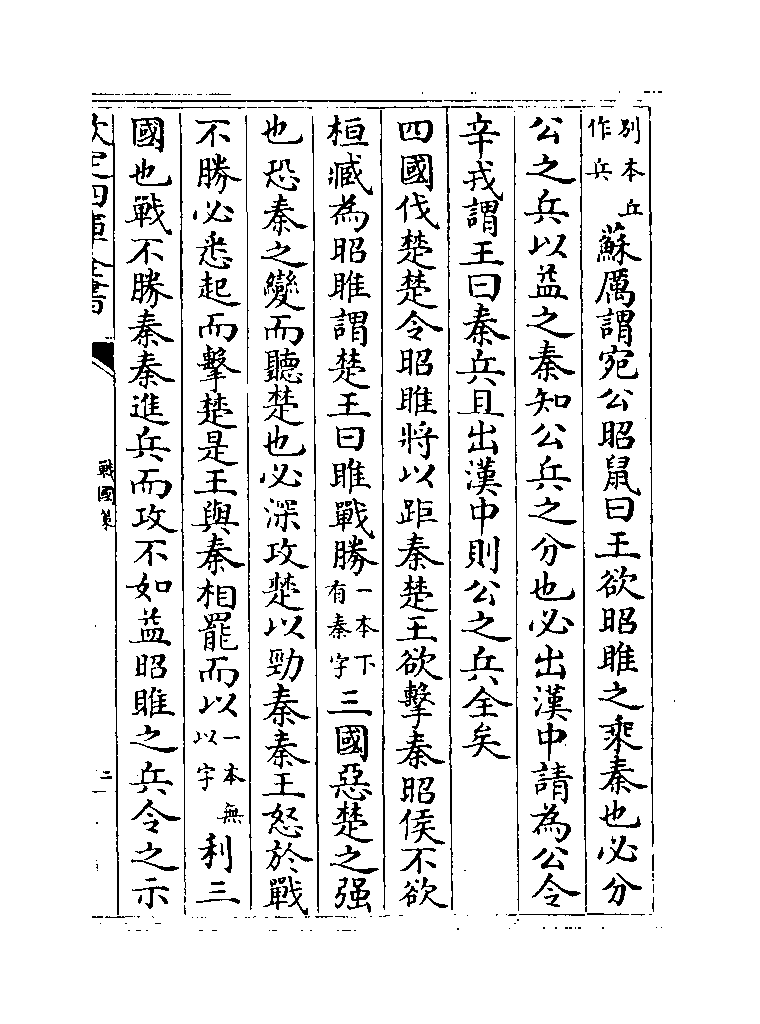 別本丘作兵蘇厲謂宛公昭鼠曰王欲昭雎之乘秦也必分
公之兵以益之秦知公兵之分也必出漢中請為公令
辛戎謂王曰秦兵且出漢中則公之兵全矣
四國伐楚楚令昭雎將以距秦楚王欲擊秦昭侯不欲
桓臧為昭雎謂楚王曰雎戰勝一本下有秦字三國惡楚之强
也恐秦之變而聽楚也必深攻楚以勁秦秦王怒於戰
不勝必悉起而擊楚是王與秦相罷而以一本無以字利三
國也戰不勝秦秦進兵而攻不如益昭雎之兵令之示
欽定四庫全書
戰國策
二